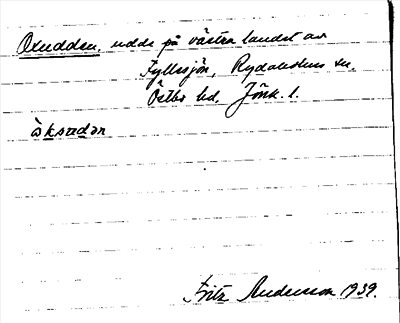 Oxudden, udde på västra landet av
Fyllesjön, Rydaholms sn.
Östbo hd, Jönk. l.
òksudən
Fritz Andersson 1939.